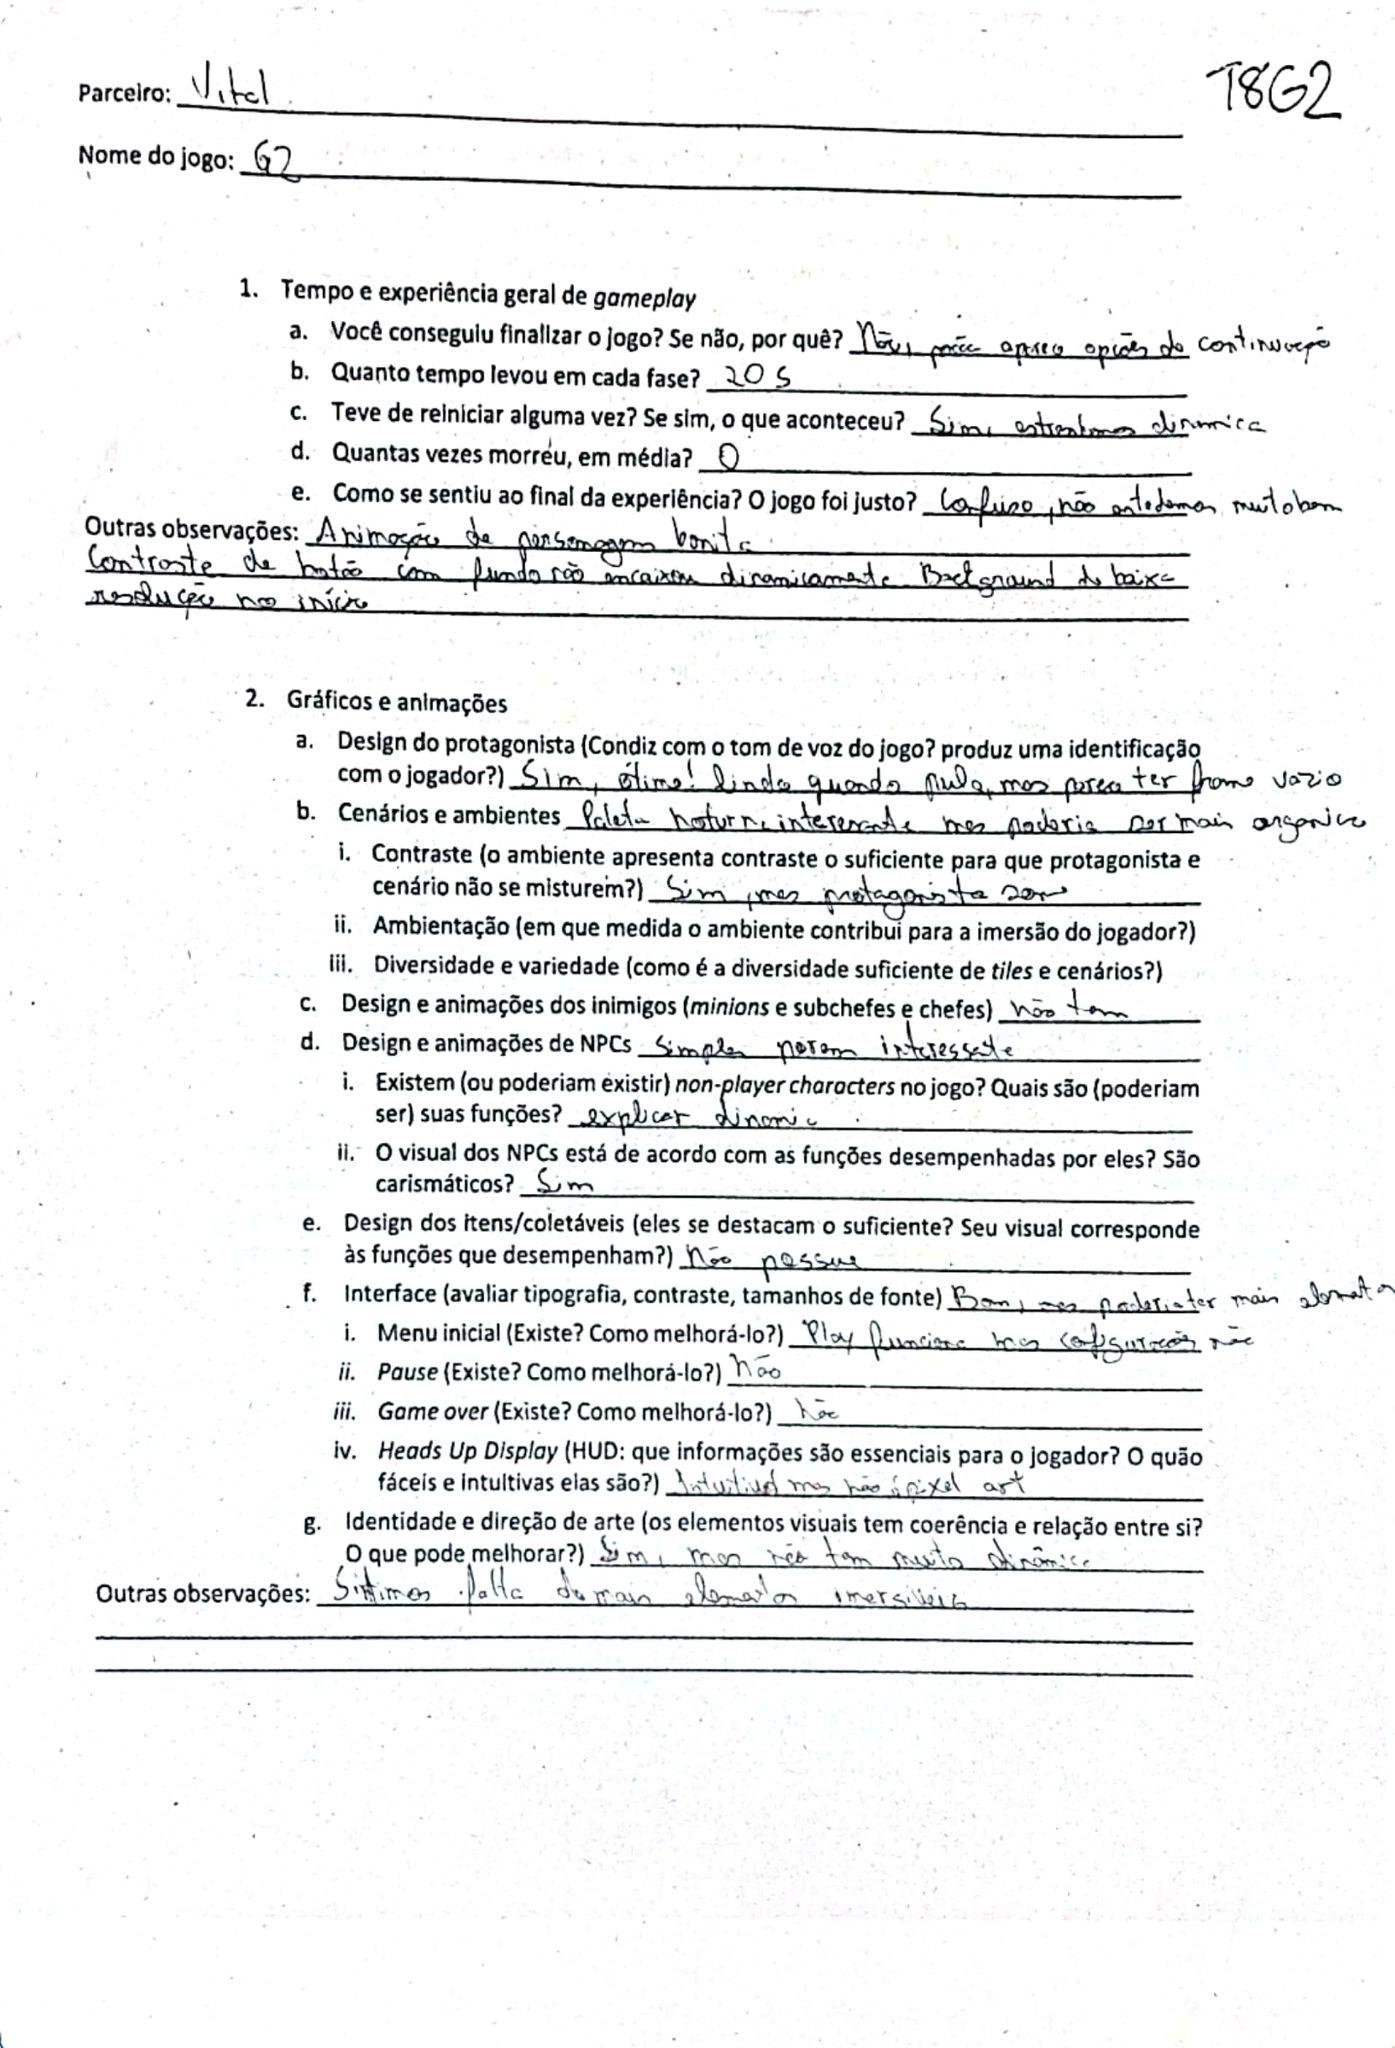 T8G2
Parceiro: Vital
Nome do jogo: G2
1. Tempo e experiência geral de gameplay
a. Você conseguiu finalizar o jogo? Se não, por quê? Não, opções de continuação
b. Quanto tempo levou em cada fase? 20 s
c. Teve de reiniciar alguma vez? Se sim, o que aconteceu? Sim, dinamica
d. Quantas vezes morreu, em média? 0
e. Como se sentiu ao final da experiência? O jogo foi justo? Confuso, não entedemos muito bem
Outras observações: Animação de personagem bonita
Contraste de botão com fundo não encaixou dinamicamente Background de baixa
resolução no início
2. Gráficos e animações
a. Design do protagonista (Condiz com o tom de voz do jogo? produz uma identificação
com o jogador?) Sim, ótimo! linda quando pula, mas parece ter frame vazio
b. Cenários e ambientes Paleta noturna interessante mas poderia ser mais organico
i. Contraste (o ambiente apresenta contraste o suficiente para que protagonista e
cenário não se misturem?) Sim, mas protagonista
ii. Ambientação (em que medida o ambiente contribui para a imersão do jogador?)
iii. Diversidade e variedade (como é a diversidade suficiente de tiles e cenários?)
c. Design e animações dos inimigos (minions e subchefes e chefes) não tem
d. Design e animações de NPCs Simples porem interessante
i. Existem (ou poderiam existir) non-player characters no jogo? Quais são (poderiam
ser) suas funções? explicar dinamic
ii. O visual dos NPCs está de acordo com as funções desempenhadas por eles? São
carismáticos? Sim
e. Design dos itens/coletáveis (eles se destacam o suficiente? Seu visual corresponde
às funções que desempenham?) Não possue
f. Interface (avaliar tipografia, contraste, tamanhos de fonte) Bom, mas poderia ter mais elementos
i. Menu inicial (Existe? Como melhorá-lo?) Play funciona mas configurações não
ii. Pause (Existe? Como melhorá-lo?) Não
iii. Game over (Existe? Como melhorá-lo?) não
iv. Heads Up Display (HUD: que informações são essenciais para o jogador? O quão
fáceis e intuitivas elas são?) mas não é pixel art
g. Identidade e direção de arte (os elementos visuais tem coerência e relação entre si?
O que pode melhorar?) Sim, mas não tem muita dinâmica
Outras observações: Sintimos falta de mais elementos